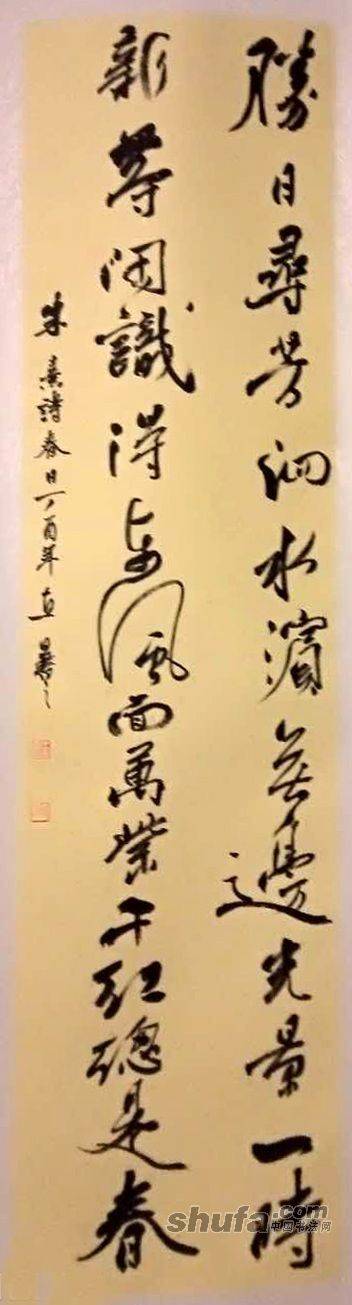 勝日尋芳泗水濱無邊光景一時
新等閑識得东風面萬紫千紅總是春
朱熹詩春日丁酉年
shufa.com
中国书法网